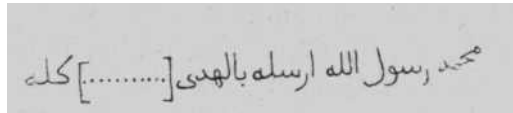 محمد رسول الله ارسله بالهدى [..........] كله